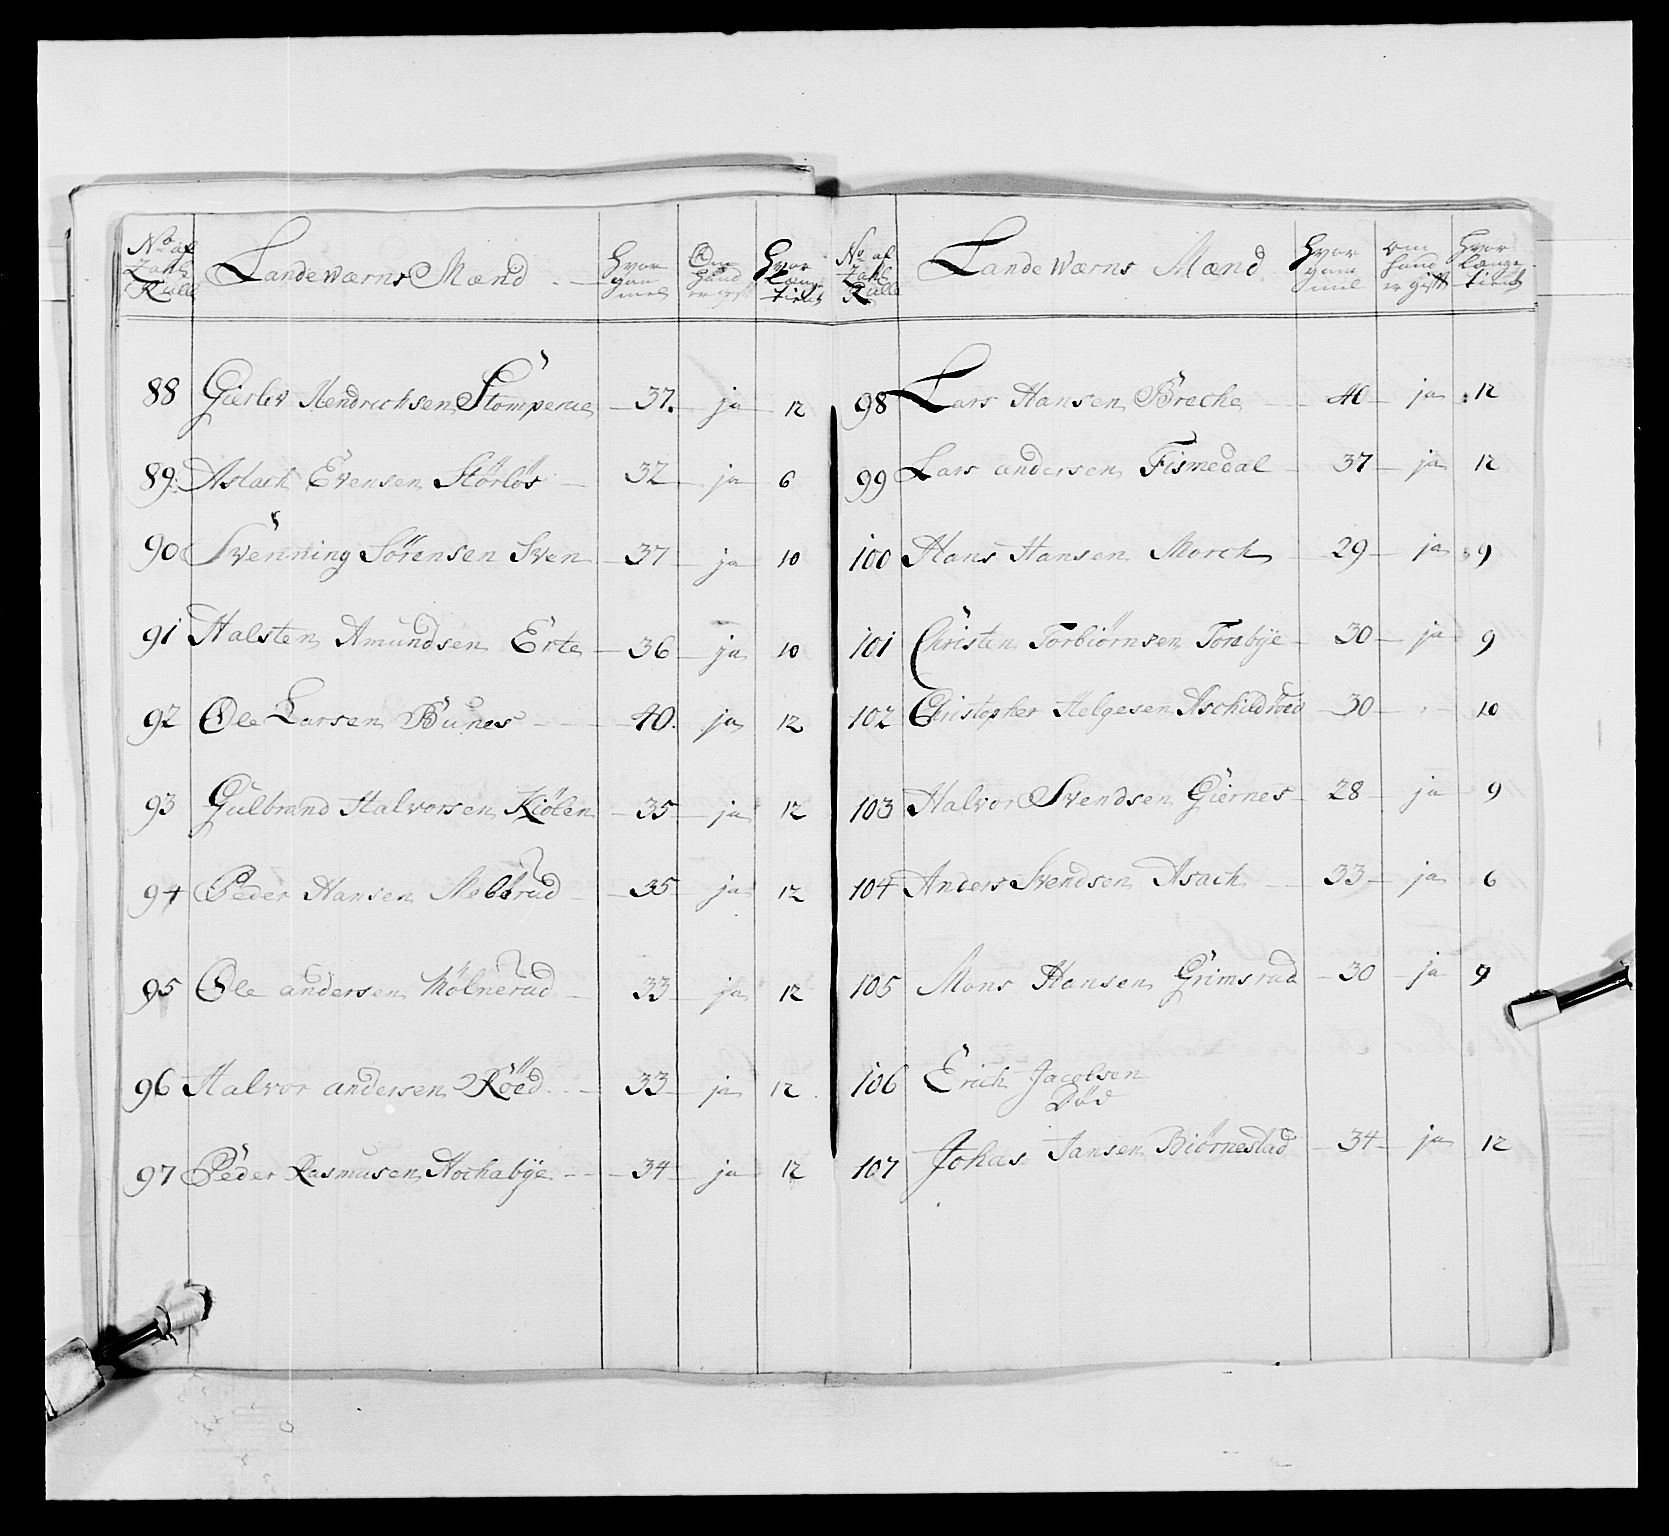 No af Zahl Rulle | Landeværns Mænd | Hvor gammel | Om hand er gift | Hvor længe tient
88 Gierlev Hendrichsen Stomperue 37. ja 12
89. Aslach Evensen Störlös 32 ja 6
90 Svenning Sörensen Sven 37 ja 10
91 Halsten Amundsen Erte 36 ja 10
92 Ole Larsen Bunes 40. ja 12
93 Gulbrand Halvorsen Kiölen 35 ja 12
94 Peder Hansen Mellerud 35 ja 12
95 Ole andersen Mölnerud 33 ja 12
96 Halvor andersen Röed 33 ja 12
97 Peder Rasmusen Hochabye 34 ja 12
No af Zahl Rulle | Lande Wærns Mænd | Hvor gammel | om hand er gift | Hvor længe tient
98 Lars Hansen Breche 40 ja 12
99 Lars andersen Fismedal 37 ja 12
100 Hans Hansen Morch 29 ja 9
101 Christen Torbiörnsen Torpbye 30 ja 9
102 Christopher Helgesen Aschildröd 30 10
103 Halvor Svendsen Giernes 28 ja 9
104 Anders Svendsen Asach 33 ja 6
105 Mons Hansen Grimsrud 30 ja 9
106 Erich Jacobsen
Död
107 Johas Jansen Biörnestad 34 ja 12